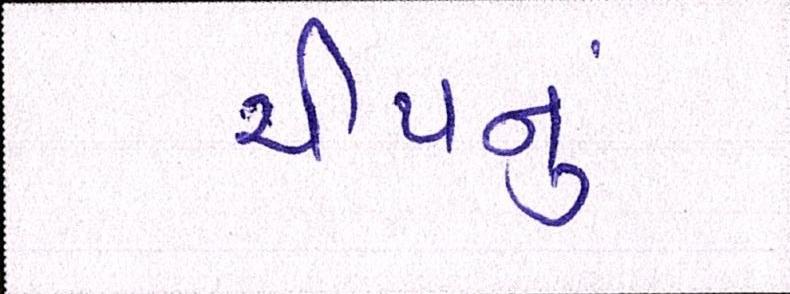 ચીપનું